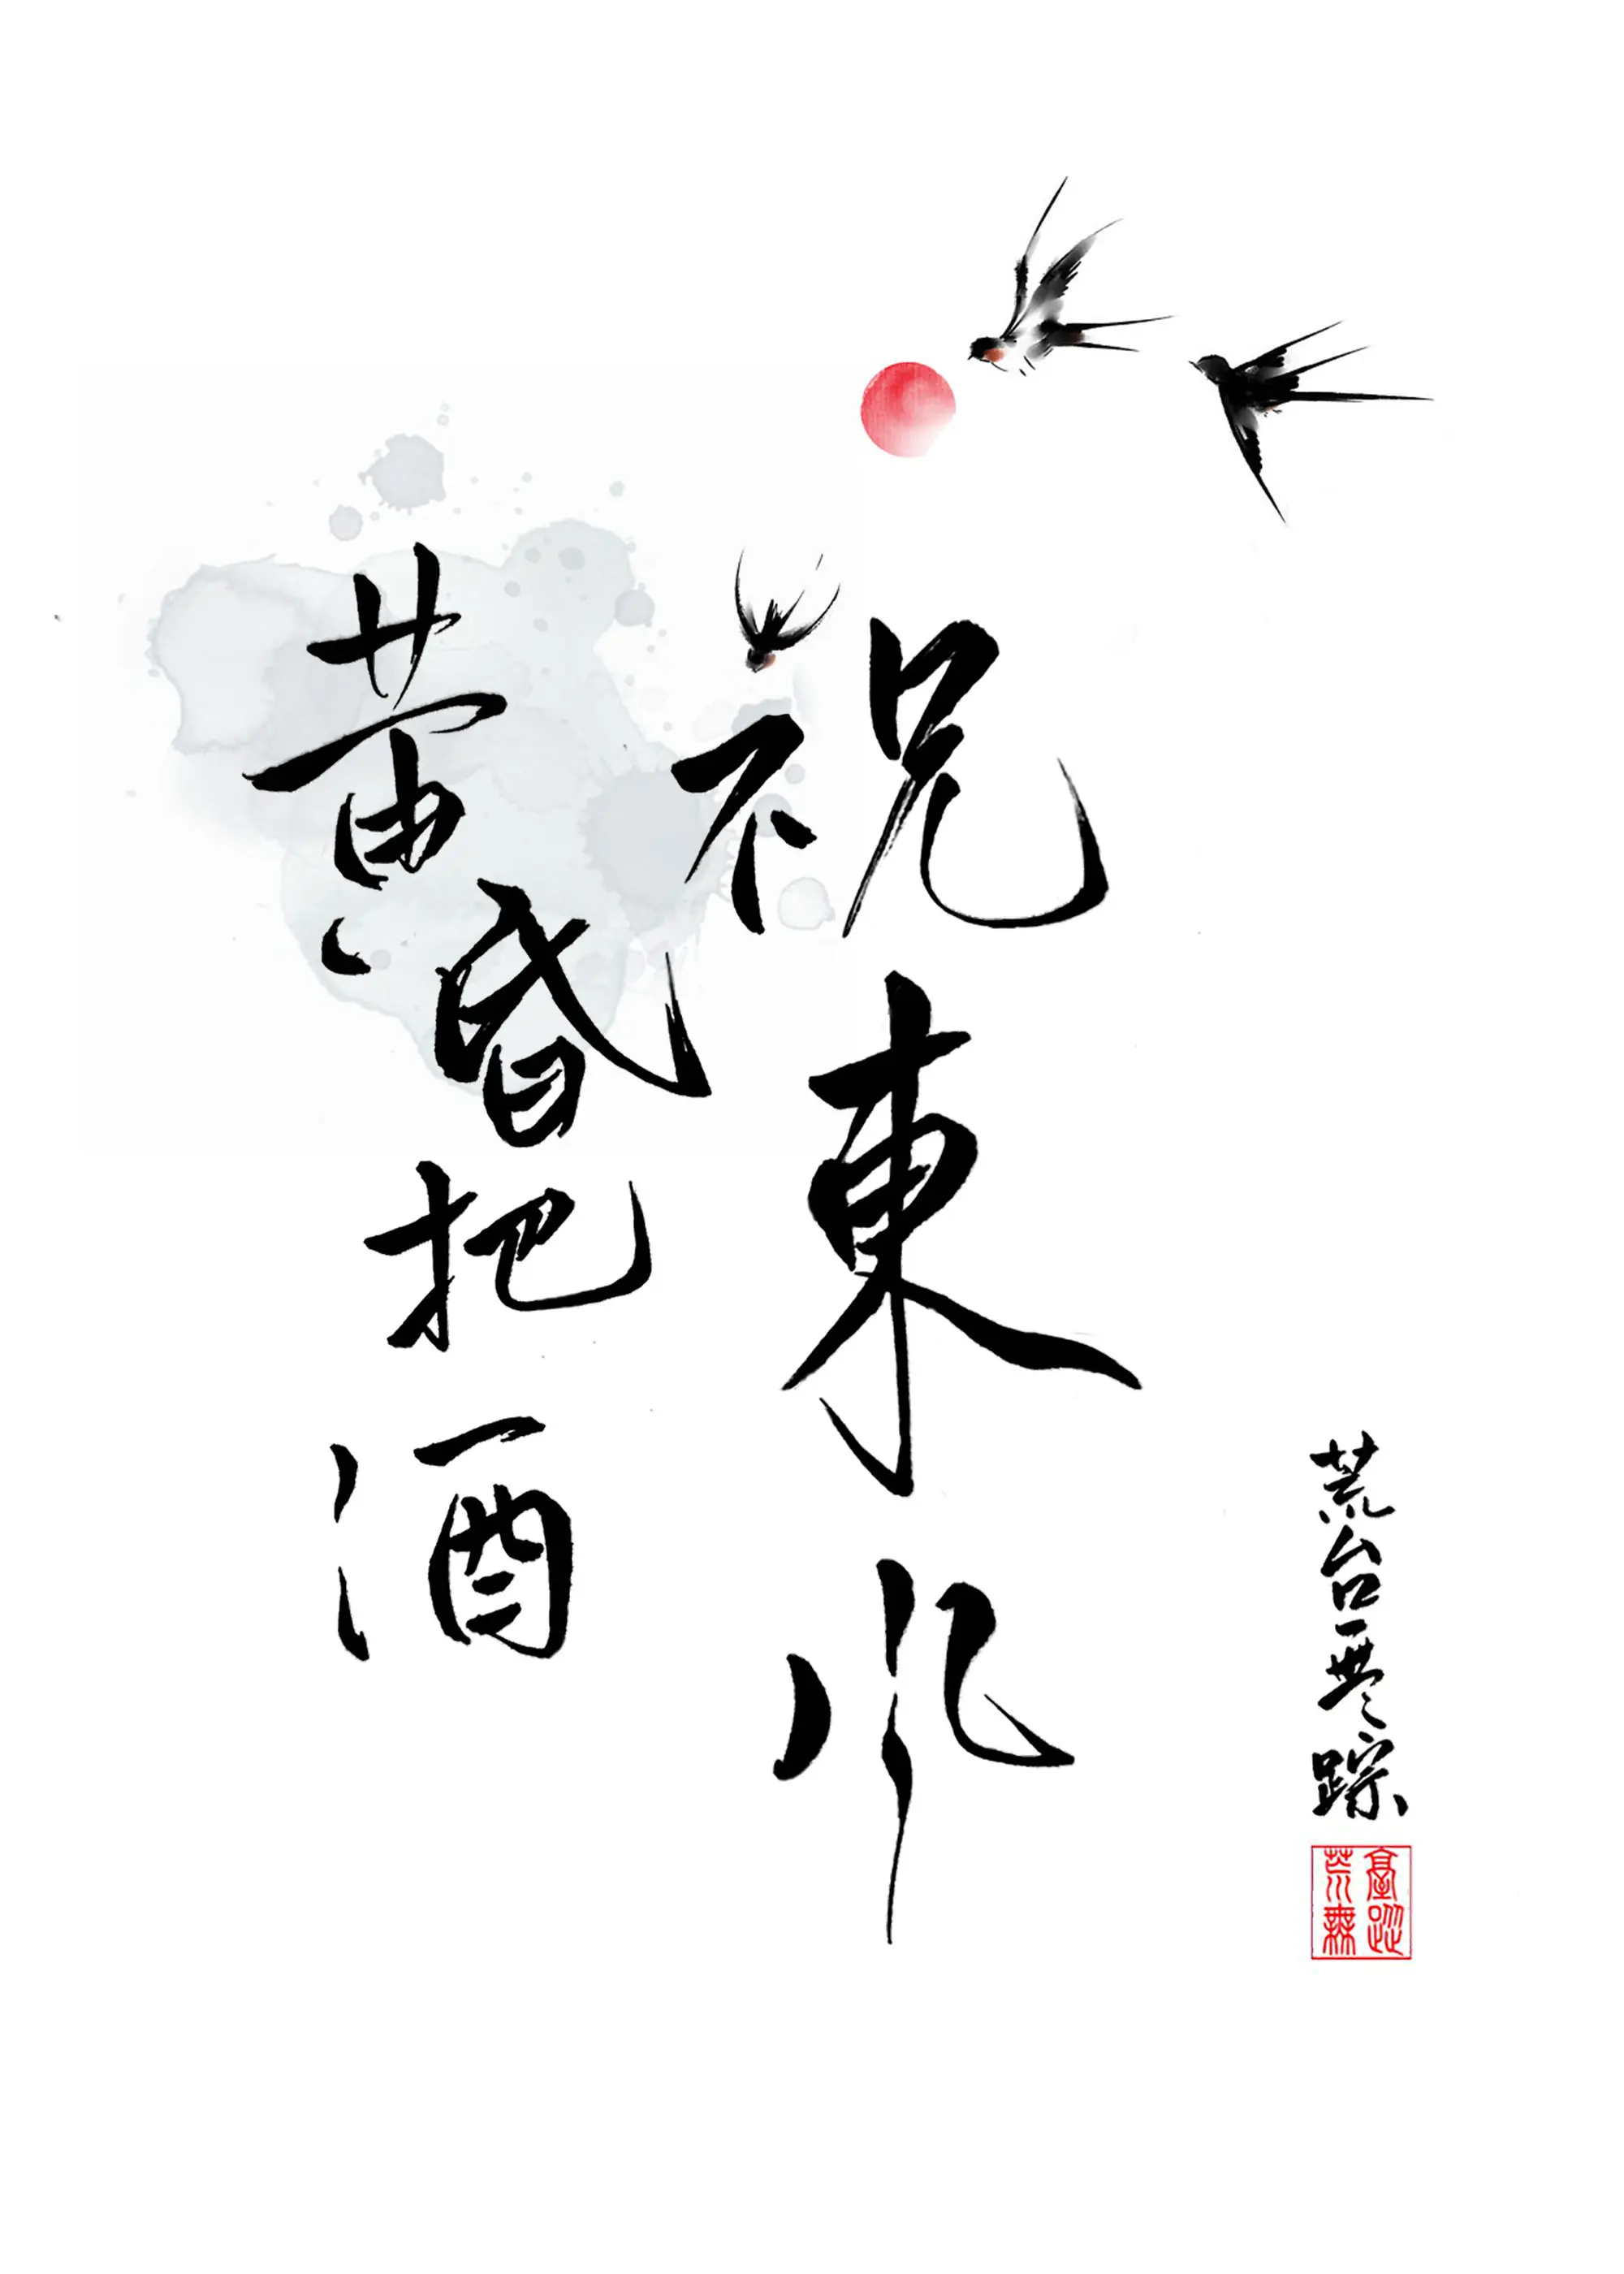 黄昏把酒
祝東風
荒台無踪
荒臺
無蹤